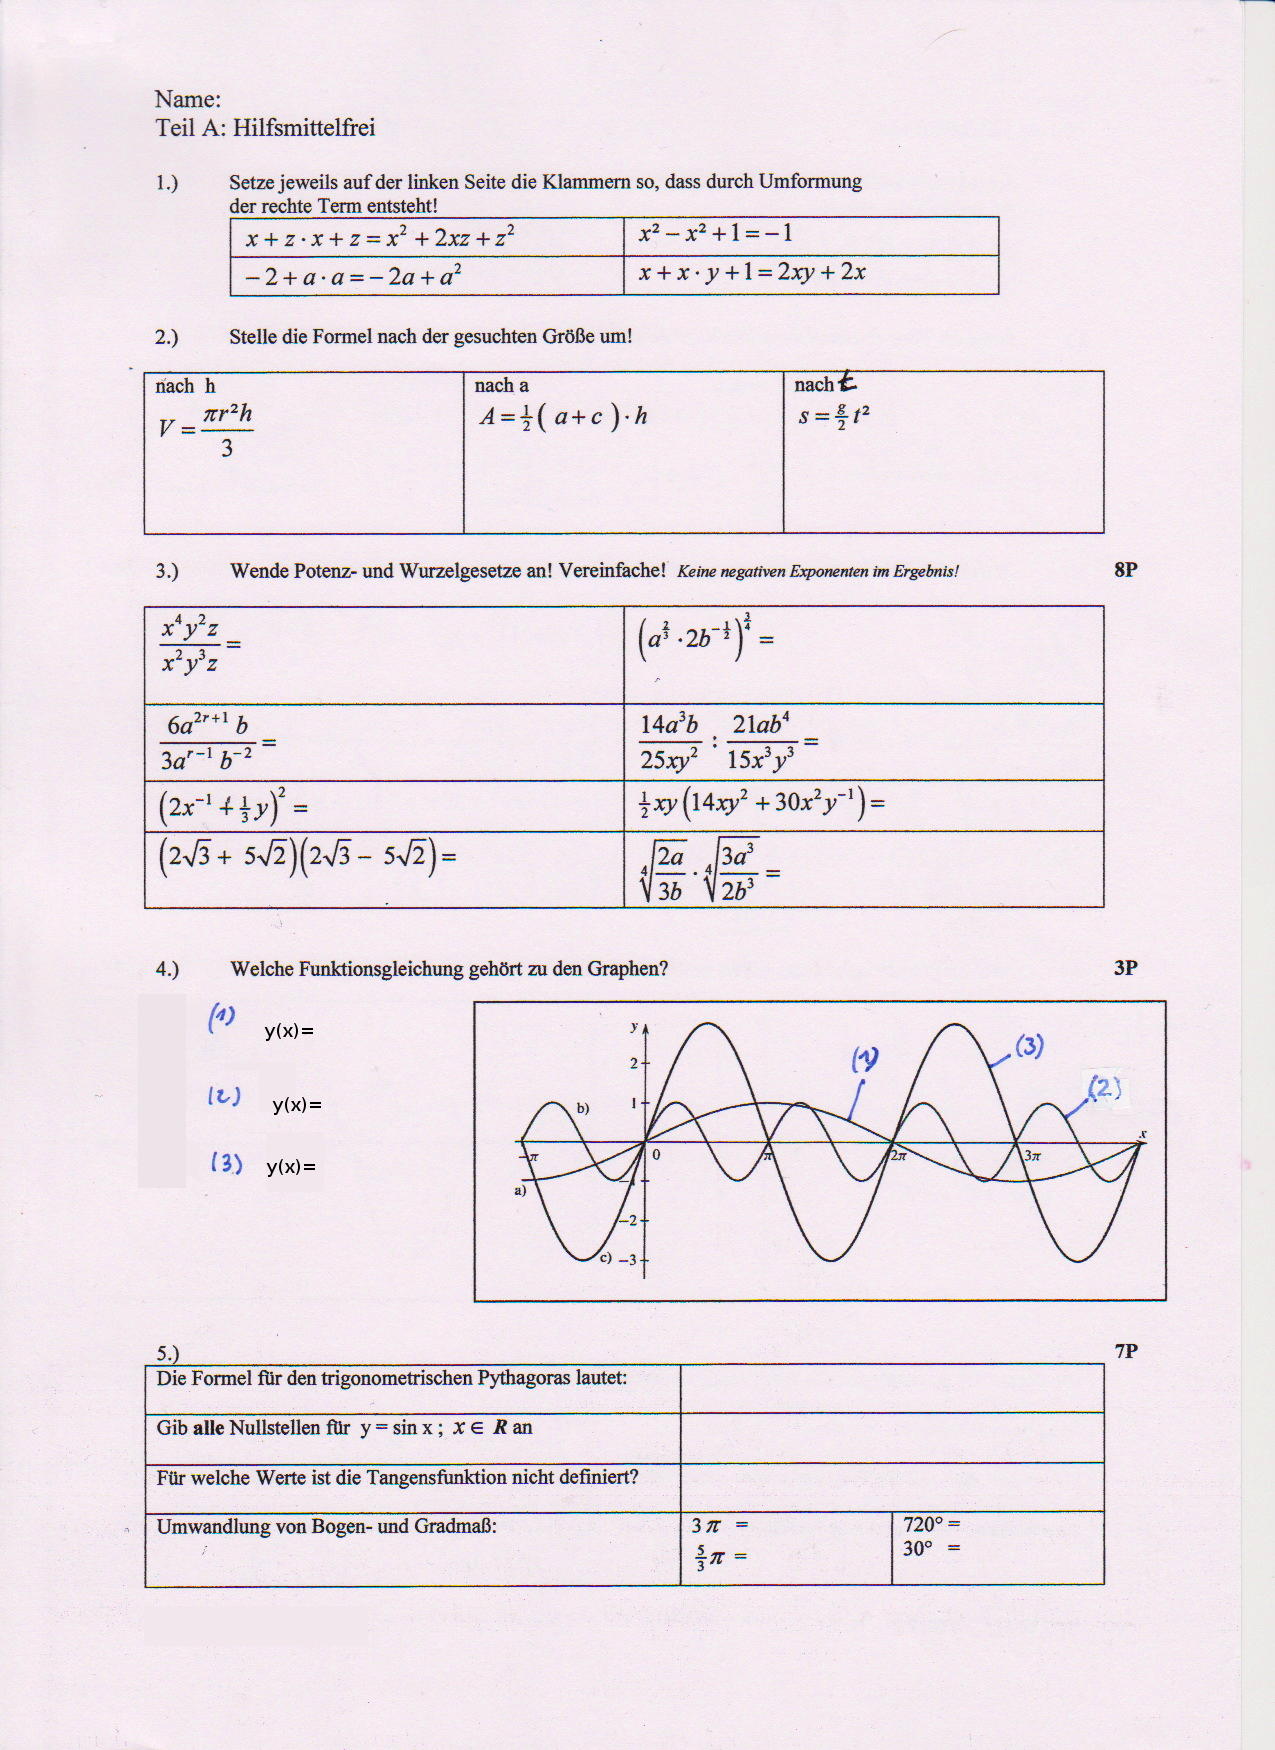 Name:
Teil A: Hilfsmittelfrei
1.) Setze jeweils auf der linken Seite die Klammern so, dass durch Umformung
der rechte Term entsteht!
x + z · x + z = x² + 2xz + z² x² − x² + 1 = −1
− 2 + a · a = − 2a + a² x + x · y + 1 = 2xy + 2x
2.) Stelle die Formel nach der gesuchten Größe um!
nach h nach a nach t
V = πr²h/3 A = ½( a + c ) · h s = g/2 t²
3.) Wende Potenz- und Wurzelgesetze an! Vereinfache! Keine negativen Exponenten im Ergebnis! 8P
x⁴y²z / x²y³z = (a^(2/3) · 2b^(−1/2))^(3/4) =
6a^(2r+1) b / 3a^(r−1) b^(−2) = 14a³b / 25xy² : 21ab⁴ / 15x³y³ =
(2x⁻¹ + ⅓y)² = ½xy(14xy² + 30x²y⁻¹) =
(2√3 + 5√2)(2√3 − 5√2) = ∜(2a/3b) · ∜(3a³/2b³) =
4.) Welche Funktionsgleichung gehört zu den Graphen? 3P
(1) y(x)=
(2) y(x)=
(3) y(x)=
y
2
1
b)
(1)
(3)
(2)
x
−π 0 π 2π 3π
a)
−1
−2
c) −3
5.) 7P
Die Formel für den trigonometrischen Pythagoras lautet:
Gib alle Nullstellen für y = sin x ; x ∈ R an
Für welche Werte ist die Tangensfunktion nicht definiert?
Umwandlung von Bogen- und Gradmaß: 3 π = 720° =
5/3 π = 30° =